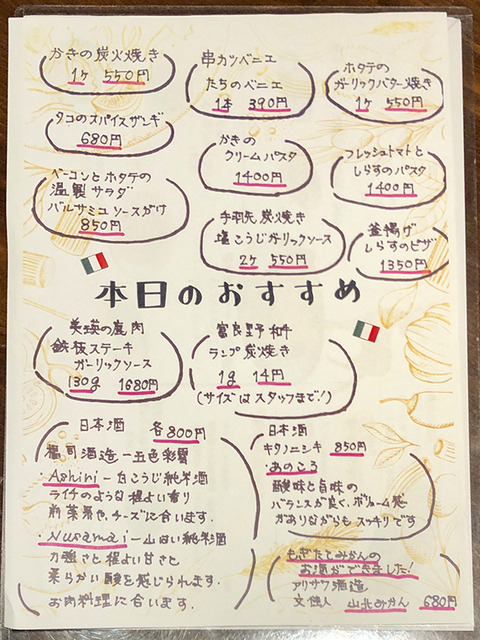 かきの炭火焼き
1ヶ 550円
串カツベニエ
たちのベニエ
1本 390円
ホタテの
ガーリックバター焼き
1ヶ 550円
タコのスパイスザンギ
680円
かきの
クリームパスタ
1400円
フレッシュトマトと
しらすのパスタ
1400円
ベーコンとホタテの
温製サラダ
バルサミコソースがけ
850円
手羽先炭火焼き
塩こうじガーリックソース
2ヶ 550円
釜揚げ
しらすのピザ
1350円
本日のおすすめ
美瑛の鹿肉
鉄板ステーキ
ガーリックソース
130g 1680円
富良野和牛
ランプ炭火焼き
1g 14円
(サイズはスタッフまで!)
日本酒 各800円
福司酒造 ー五色彩雲
・Ashiri ー白こうじ純米酒
ライチのような程よい香り
前菜、チーズに合います.
・Nusamai ー山はい純米酒
力強さと程よい甘さと
柔らかい酸を感じられます.
お肉料理に合います.
日本酒
キタノニシキ 850円
・あのころ
酸味と旨味の
バランスが良く、ボリューム感
がありながらも スッキリです
もぎたてみかんの
お酒ができました!
アリサワ酒造
文佳人 山北みかん 680円